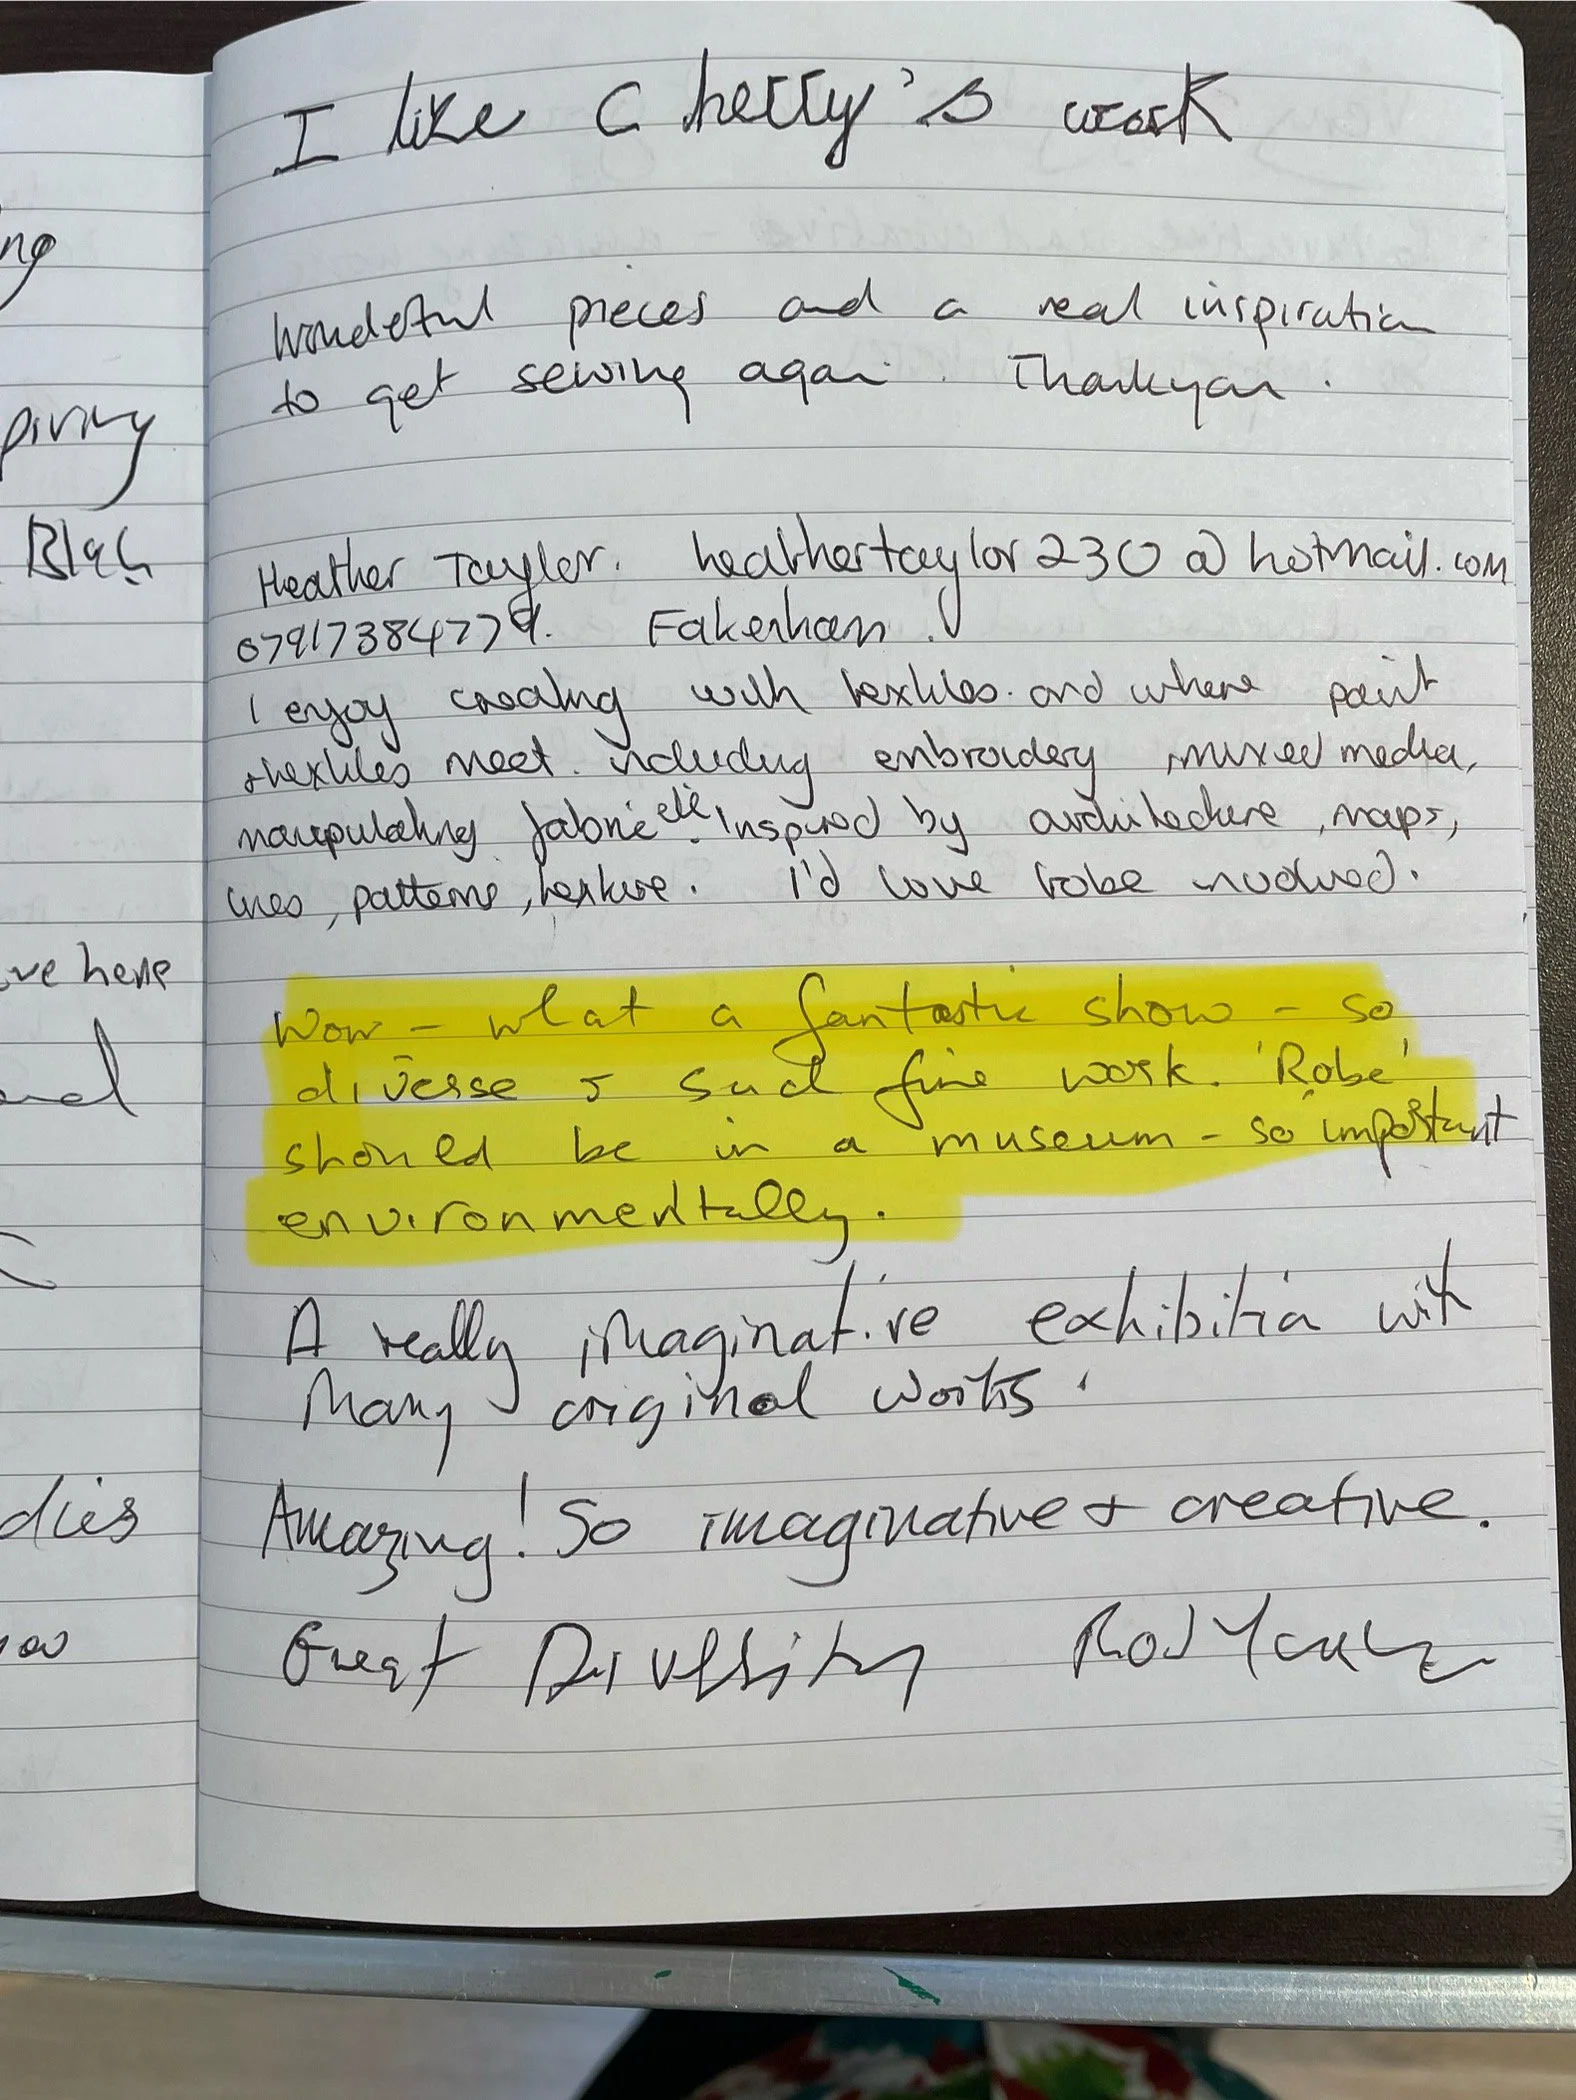 I like Cherry's work
ng
Wonderful pieces and a real inspiration
to get sewing again. Thankyou.
piring
Heather Taylor. heathertaylor230@hotmail.com
07917384779. Fakenham.
I enjoy creating with textiles. and where paint
+textiles meet. including embroidery, mixed media,
manipulating fabric etc. Inspired by architecture, maps,
lines, patterns, texture. I'd love to be involved.
ve here
Wow - what a fantastic show - so
diverse & such fine work. 'Robe'
should be in a museum - so important
environmentally.
A really imaginative exhibition with
many original works.
dies
Amazing! So imaginative + creative.
Great Diversity Rod